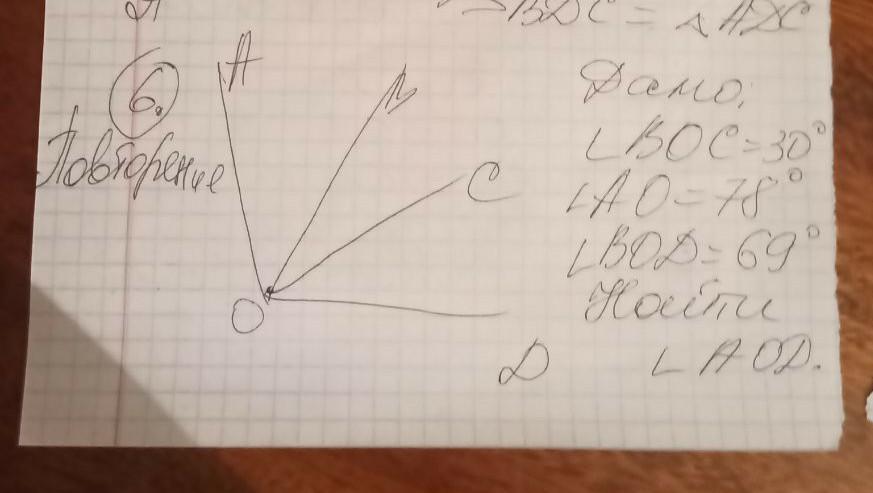 BDC = △ADC
6.
Повторение
A
B
C
O
D
Дано:
∠BOC=30°
∠AO=78°
∠BOD=69°
Найти
∠AOD.